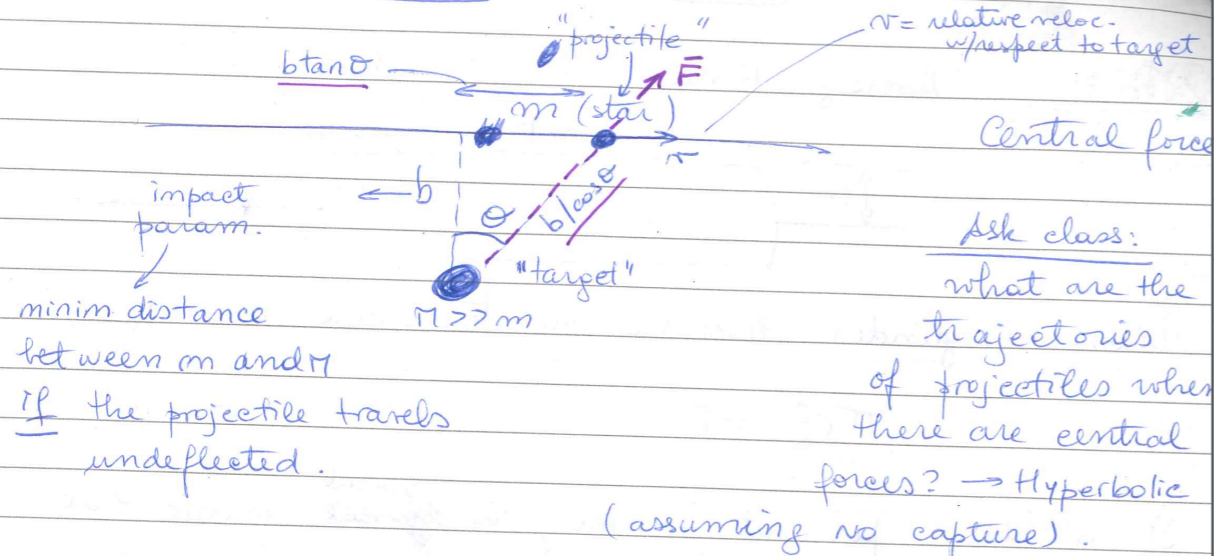 "projectile"
v = relative veloc.
w/respect to target
b tan θ
F
m (star)
v
Central force
impact
param.
b
θ
b/cosθ
"target"
M >> m
minim distance
between m and M
if the projectile travels
undeflected.
Ask class:
what are the
trajectories
of projectiles when
there are central
forces? → Hyperbolic
(assuming NO capture).